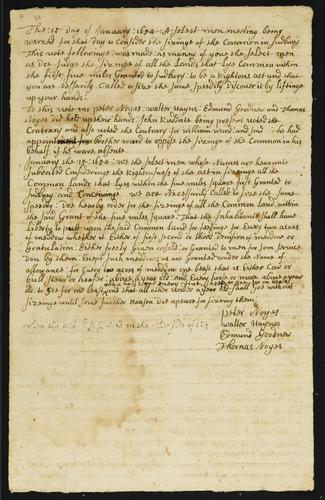 The 15 Day of January: 1654: A select men meeting being
warned for that day to Consider the sizeinge of the Common in Sudbury
This vote followinge was made: as many of you the select men
as Doe Judge the sizeinge of all the Lands that Lye Common within
the first five miles Granted to Sudbury: to be a Rightous act and that
you are Nessarily Called to size the same speedily Discover it by lifting
up your hands:
To this vote mr peter Noyes: walter Haynes: Edmund Goodnow and Thomas
Noyes did hold up their hands: John Ruddicke being present voted the
Contrary and also voted the Contrary for william ward: and said he had
from brother ward to oppose the sizeinge of the Common in his
behalf if he weare absente
January the 15: 1654: we the select men whose Names are hearunto
subscribed Considering the Rightusness of the act in sizeinge all the
Common Land: that Lyes within the five miles square first granted to
Sudbury and we are Nessesarily Called to size the same
speedily: Doe hearby order for the sizeinge of all the Common Land within
the said Grant of the five miles square: That the Inhabitants shall have
Liberty to putt upon the said Common Land for feedinge for Every two acres
of meadow whether it Either of first second or third Devision of meadow or
Gratulation: Either freely Given or Granted to men for som servis
Don by them: Except such meddow as are Granted under the Name of
allowance: for Every two acres of meddow one beast that is Either Cow or
bull steer or heifer: above a year old: And Every horse or mare above a year
and a half old and every
old: to goe for one beast and that all other under a year old shall Goe without
sizeinge until some further Reason Doe apeare for sizeing them
peter Noyes
walter Haynes
Edmund Goodnow
Thomas Noyes